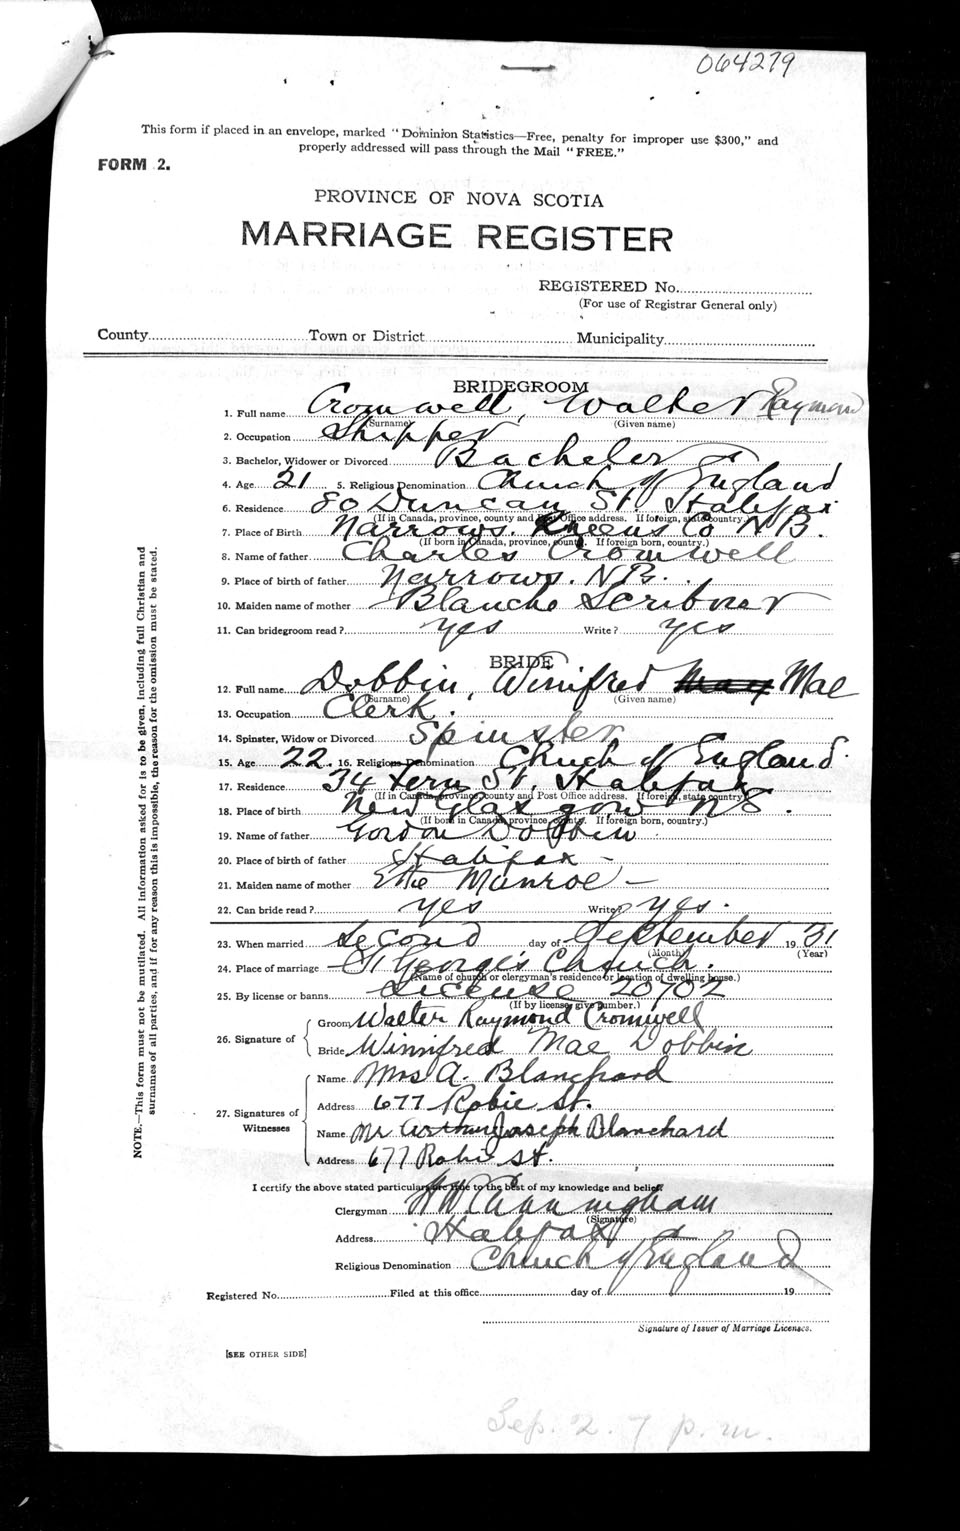 064279
This form if placed in an envelope, marked "Dominion Statistics—Free, penalty for improper use $300," and
properly addressed will pass through the Mail "FREE."
FORM 2.
PROVINCE OF NOVA SCOTIA
MARRIAGE REGISTER
REGISTERED No.
(For use of Registrar General only)
County Town or District Municipality
BRIDEGROOM
1. Full name Cromwell, Walter Raymond
(Surname) (Given name)
2. Occupation Shipper
3. Bachelor, Widower or Divorced Bachelor
4. Age 21 5. Religious Denomination Church of England
6. Residence 80 Duncan St. Halifax
(If in Canada, province, county and Post Office address. If foreign, state country.)
7. Place of Birth Narrows. Queens Co N B.
(If born in Canada, province, county. If foreign born, country.)
8. Name of father Charles Cromwell
9. Place of birth of father Narrows. N B.
10. Maiden name of mother Blanche Scribner
11. Can bridegroom read? yes Write? yes
BRIDE
12. Full name Dobbin, Winifred May Mae
(Surname) (Given name)
13. Occupation Clerk.
14. Spinster, Widow or Divorced Spinster
15. Age 22. 16. Religious Denomination Church of England.
17. Residence 34 Fern St. Halifax
(If in Canada, province, county and Post Office address. If foreign, state country.)
18. Place of birth New Glasgow N S.
(If born in Canada, province, county. If foreign born, country.)
19. Name of father Gordon Dobbin
20. Place of birth of father Halifax –
21. Maiden name of mother Ettie Munroe –
22. Can bride read? yes Write? yes.
23. When married Second day of September 19 31
(Month) (Year)
24. Place of marriage St George's Church.
(Name of church or clergyman's residence or location of dwelling house.)
25. By license or banns License 20702
(If by license, give number.)
26. Signature of
Groom Walter Raymond Cromwell
Bride Winnifred Mae Dobbin
27. Signatures of Witnesses
Name Mrs A. Blanchard
Address 677 Robie St.
Name Mr Arthur Joseph Blanchard
Address 677 Robie St.
I certify the above stated particulars are true to the best of my knowledge and belief.
Clergyman H W Cunningham
(Signature)
Address Halifax
Religious Denomination Church of England
Registered No. Filed at this office day of 19
Signature of Issuer of Marriage Licenses.
[SEE OTHER SIDE]
Sep. 2. 7 p.m.
NOTE.—This form must not be mutilated. All information asked for is to be given, including full Christian and
surnames of all parties, and if for any reason this is impossible, the reason for the omission must be stated.